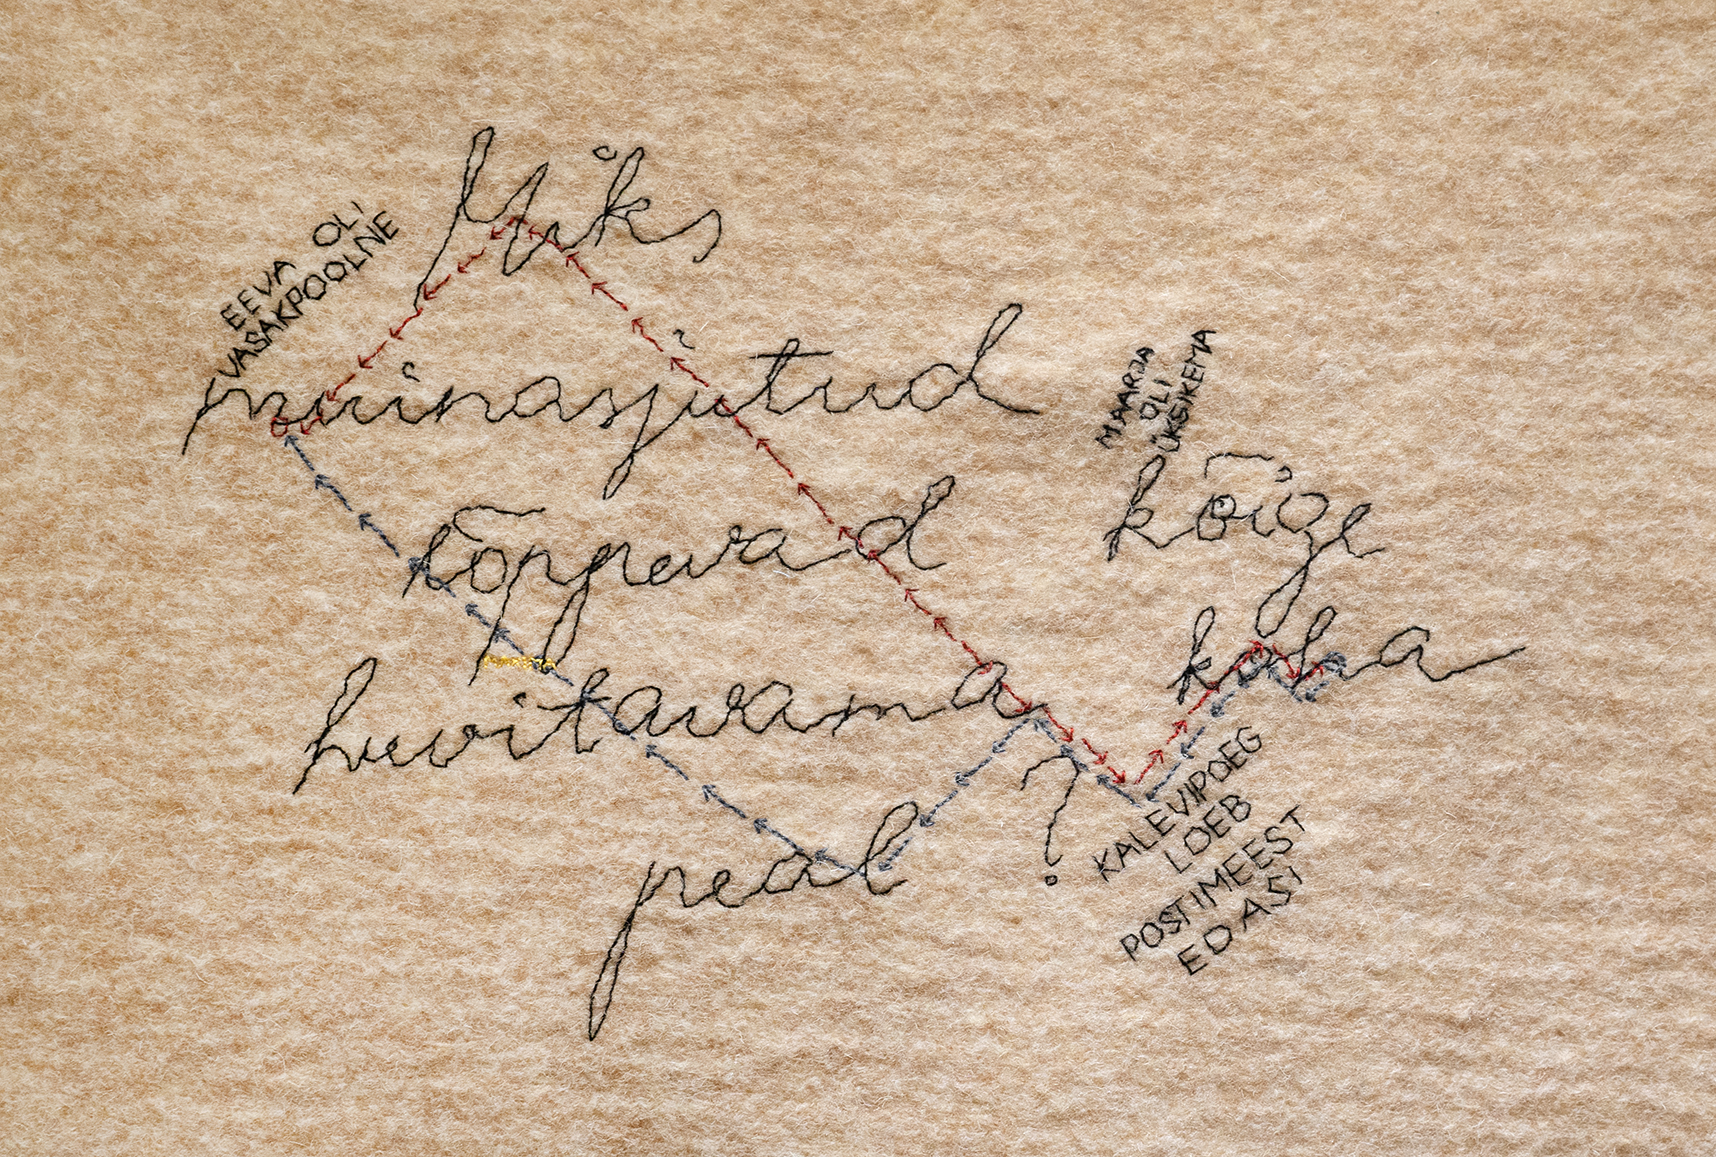 EEVA OLI
VASAKPOOLNE
Miks
muinasjutud
MAARJA
OLI
ÜKSIKEMA
lõppevad kõige
huvitavama koha
peal ?
KALEVIPOEG
LOEB
POSTIMEEST
EDASI